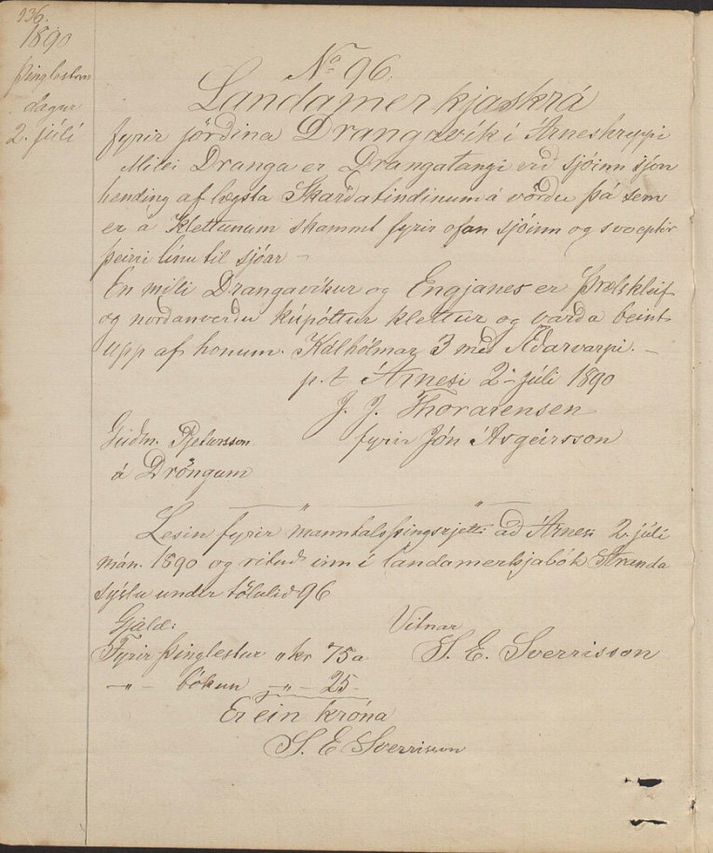 236.
1890
þinglestrar
dagur
2. júlí
No 96.
Landamerkjaskrá
fyrir jörðina Drangavík í Árneshreppi
Milli Dranga er Drangatangi við sjóinn sjón
hending af hæsta Skarðatindinum á vörðu þá sem
er á Klettunum skammt fyrir ofan sjóinn og svo eptir
þeirri línu til sjóar –
En milli Drangavíkur og Engjanes er Þrælskleif
og norðanverðu kúpóttur klettur og varða beint
upp af honum. Kálhólmar 3 með Æðarvarpi. –
p. t. Árnesi 2– júli 1890
J. J. Thorarensen
Guðm. Pjetursson
fyrir Jón Ásgeirsson
á Dröngum
Lesin fyrir manntalsþingsrjetti að Árnesi 2. júlí
mán. 1890 og rituð inn í landamerkjabók Stranda
sýslu undir tölulið 96
Gjald:
Vitnar
Fyrir þinglestur " kr 75 a
S. E. Sverrisson
–"– bókun –"– 25 –
Er ein króna
S. E. Sverrisson